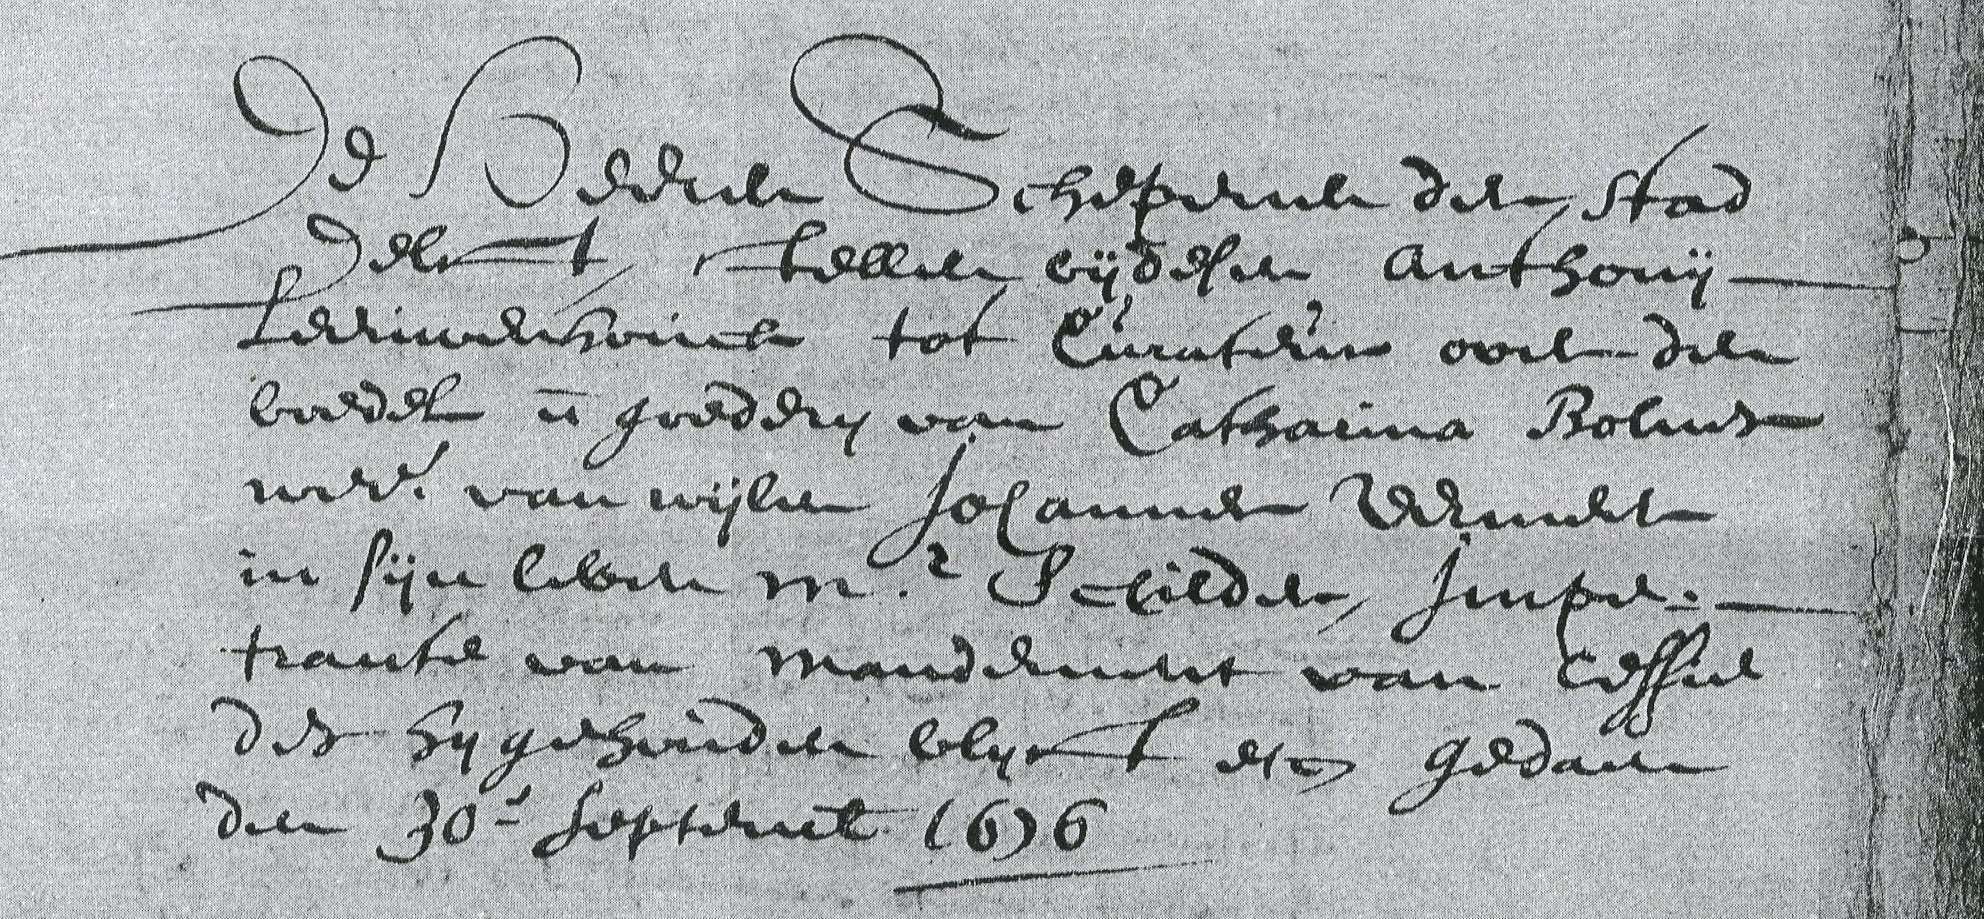 De Heeren Schepenen der Stad
Delft, stellen bij desen Anthonij
Leeuwenhouck tot Curateur over den
boedel ē goederen van Catharina Bolnes
wede. van wijlen Johannes Vermeer
in sijn leven mr. Schilder, Impe-
trante van mandement van Cessie
des hij gehouden blijft etc Gedaen
den 30e september 1676